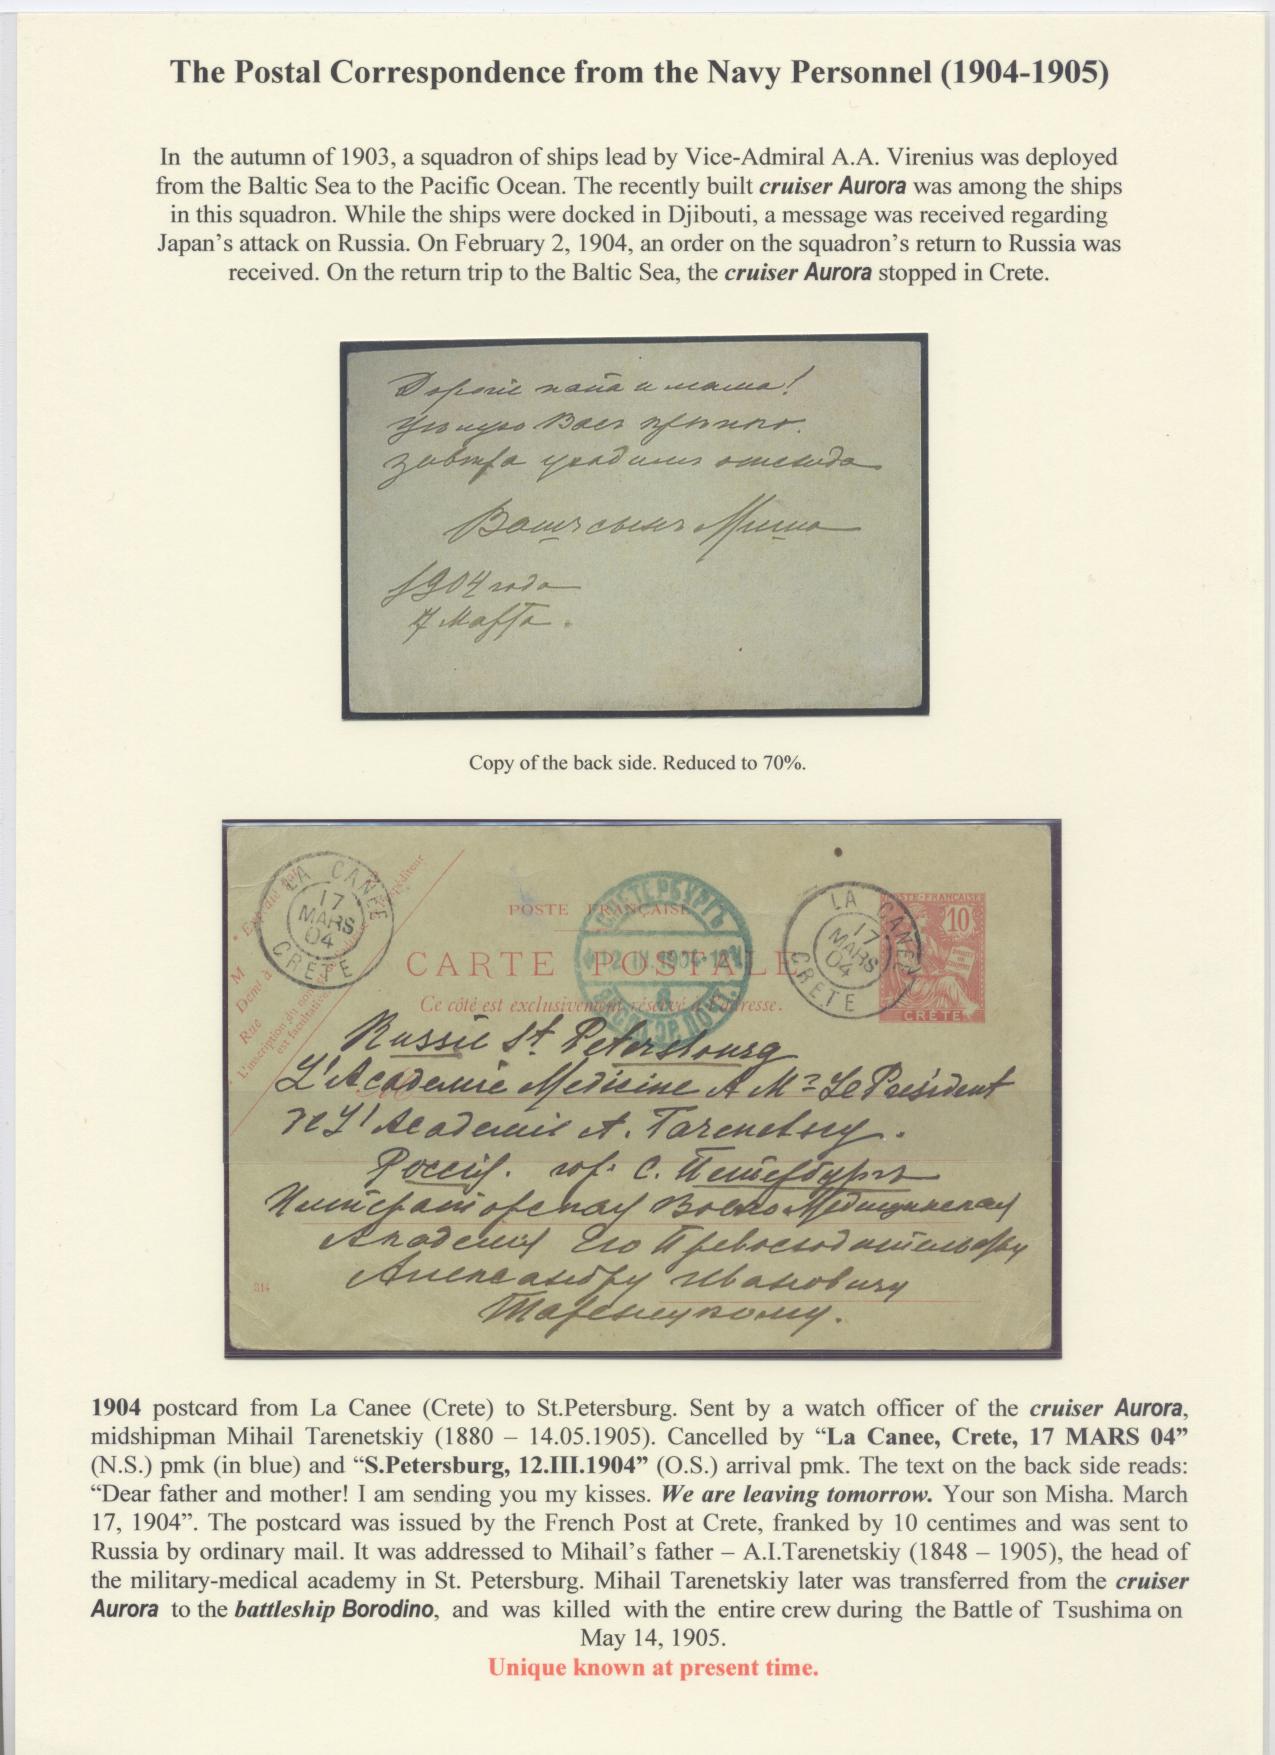 The Postal Correspondence from the Navy Personnel (1904-1905)
In the autumn of 1903, a squadron of ships lead by Vice-Admiral A.A. Virenius was deployed
from the Baltic Sea to the Pacific Ocean. The recently built cruiser Aurora was among the ships
in this squadron. While the ships were docked in Djibouti, a message was received regarding
Japan's attack on Russia. On February 2, 1904, an order on the squadron's return to Russia was
received. On the return trip to the Baltic Sea, the cruiser Aurora stopped in Crete.
Дорогiе папа и мама!
Цѣлую Васъ крѣпко.
Завтра уходимъ отсюда
Вашъ сынъ Миша
1904 года
Марта.
Copy of the back side. Reduced to 70%.
LA CANEE
17
MARS
04
CRETE
POSTE FRANÇAISE
С.ПЕТЕРБУРГЪ
LA CANEE
17
MARS
04
CRETE
POSTE FRANÇAISE
10
CRÈTE
CARTE POSTALE
Ce côté est exclusivement réservé à l'adresse.
M
Rue
L'inscription du nom
est facultative
Russie St. Petersbourg
L'Academie Medicine A Mr Le President
de L'Academie A. Tarenetsky.
Россiя. гор. С. Петербургъ
Императорская Военно Медицинская
Академiя Его Превосходительству
Александру Ивановичу
314
Таренецкому.
1904 postcard from La Canee (Crete) to St.Petersburg. Sent by a watch officer of the cruiser Aurora,
midshipman Mihail Tarenetskiy (1880 – 14.05.1905). Cancelled by “La Canee, Crete, 17 MARS 04”
(N.S.) pmk (in blue) and “S.Petersburg, 12.III.1904” (O.S.) arrival pmk. The text on the back side reads:
“Dear father and mother! I am sending you my kisses. We are leaving tomorrow. Your son Misha. March
17, 1904”. The postcard was issued by the French Post at Crete, franked by 10 centimes and was sent to
Russia by ordinary mail. It was addressed to Mihail's father – A.I.Tarenetskiy (1848 – 1905), the head of
the military-medical academy in St. Petersburg. Mihail Tarenetskiy later was transferred from the cruiser
Aurora to the battleship Borodino, and was killed with the entire crew during the Battle of Tsushima on
May 14, 1905.
Unique known at present time.